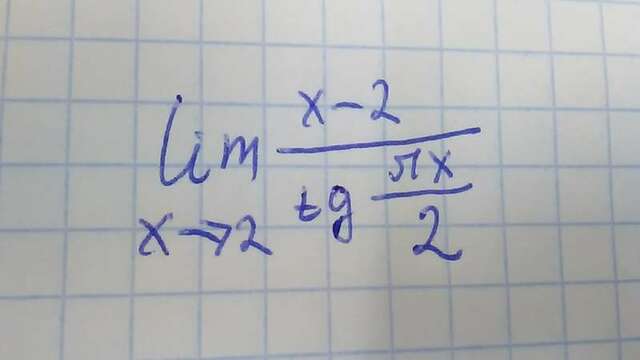 lim x→2 (x-2)/(tg πx/2)